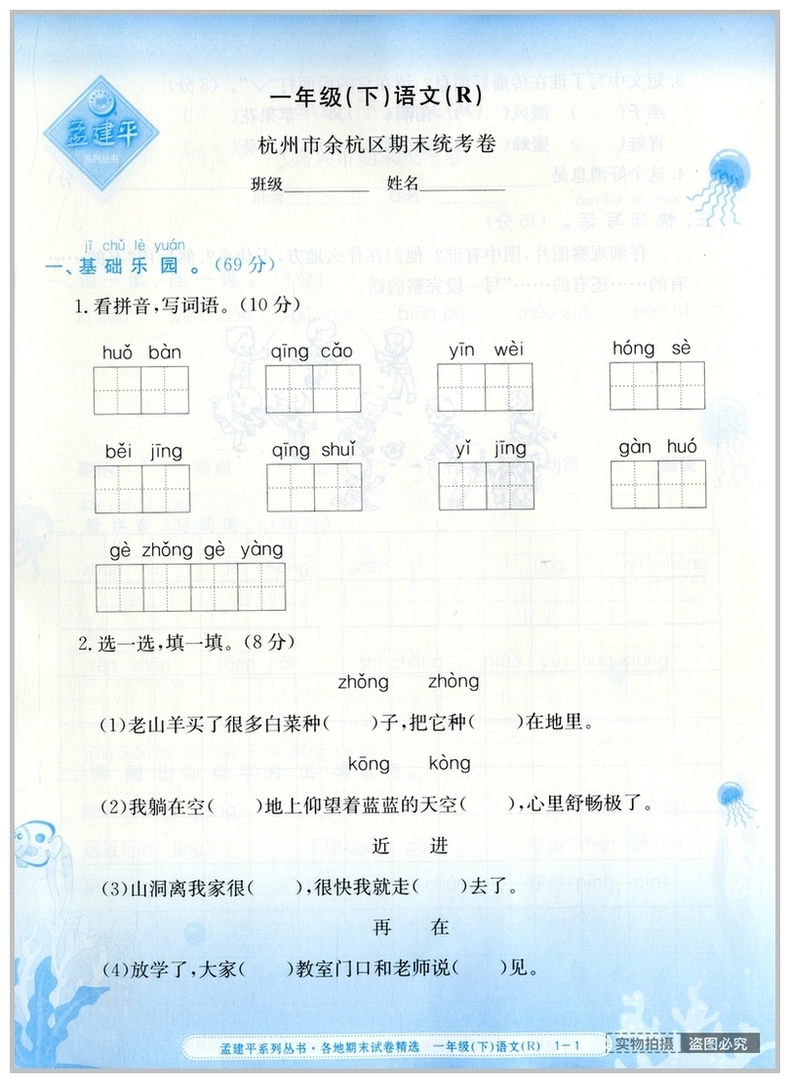 一年级(下)语文(R)
孟建平
系列丛书
杭州市余杭区期末统考卷
班级________ 姓名________
jī chǔ lè yuán
一、基础乐园。(69分)
1.看拼音,写词语。(10分)
huǒ bàn qīng cǎo yīn wèi hóng sè
běi jīng qīng shuǐ yǐ jīng gàn huó
gè zhǒng gè yàng
2.选一选,填一填。(8分)
zhǒng zhòng
(1)老山羊买了很多白菜种( )子,把它种( )在地里。
kōng kòng
(2)我躺在空( )地上仰望着蓝蓝的天空( ),心里舒畅极了。
近 进
(3)山洞离我家很( ),很快我就走( )去了。
再 在
(4)放学了,大家( )教室门口和老师说( )见。
孟建平系列丛书·各地期末试卷精选 一年级(下)语文(R) 1-1
实物拍摄 盗图必究